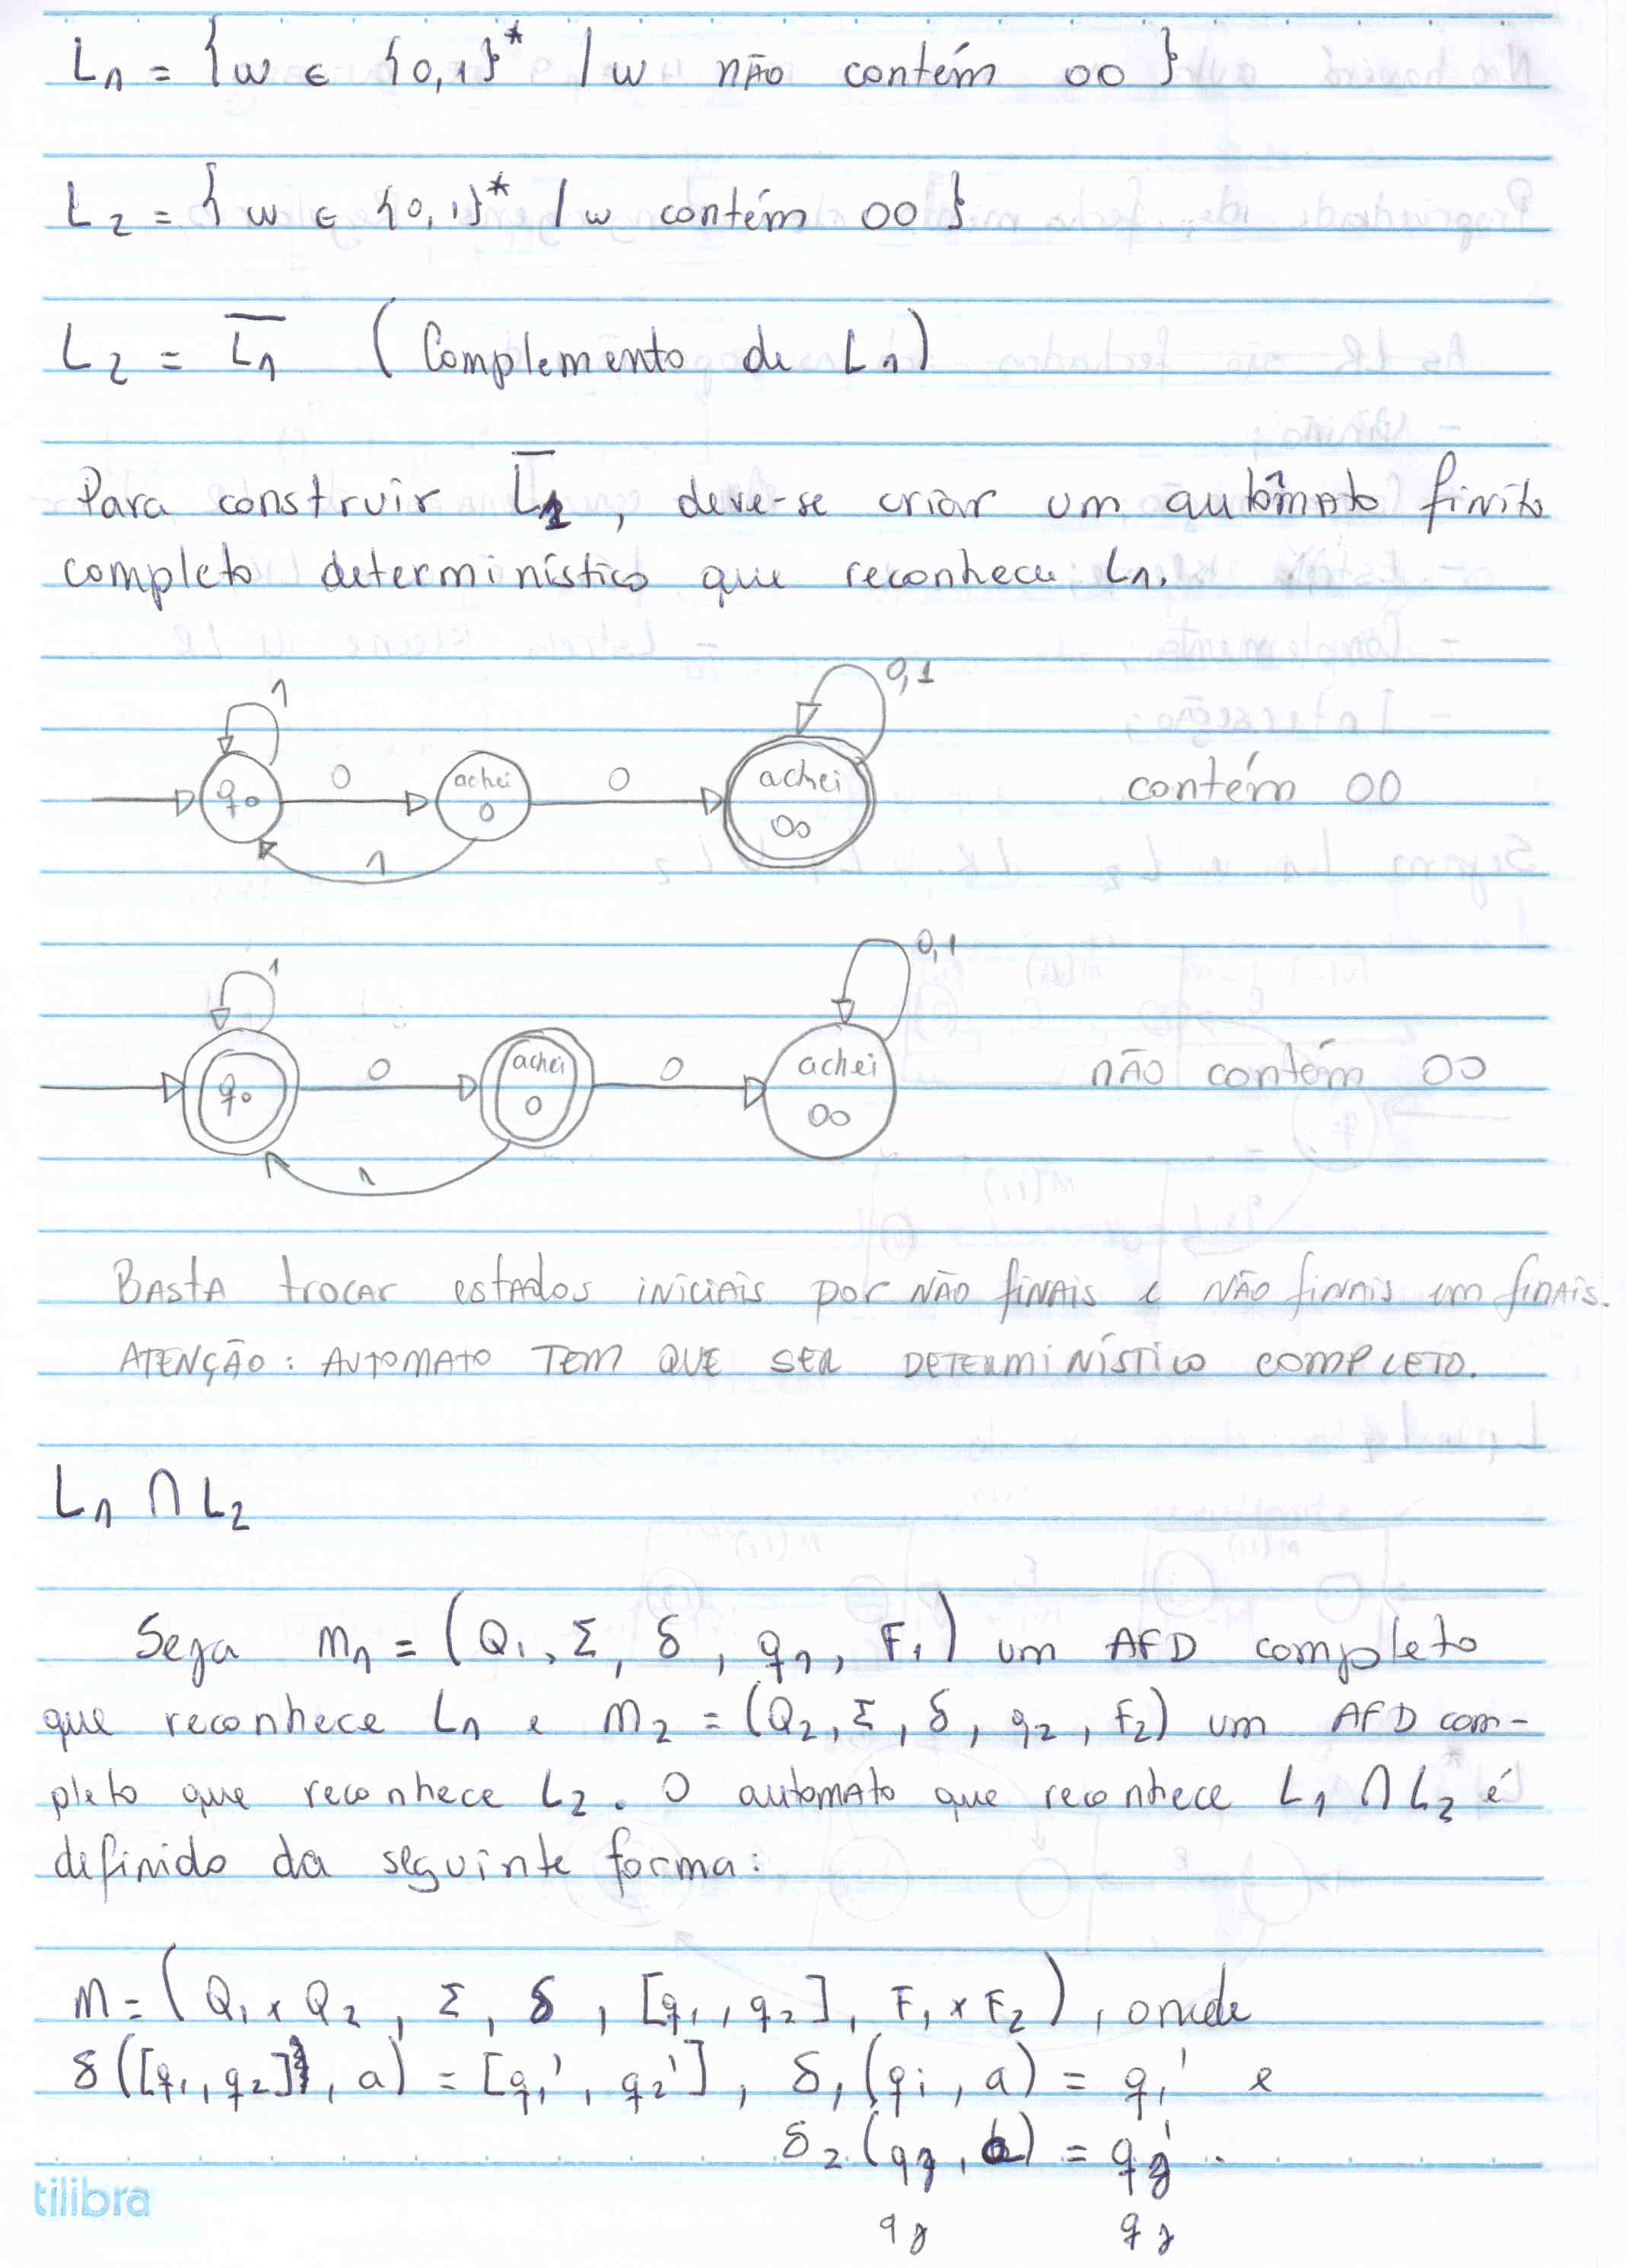 L1 = {w ∈ {0,1}* / w não contém 00}
L2 = {w ∈ {0,1}* / w contém 00}
L2 = L̅1 (Complemento de L1)
Para construir L̅1, deve-se criar um autômato finito
completo determinístico que reconhece L1.
1
0,1
q0
0
achei
0
0
achei
00
contém 00
1
1
0,1
q0
0
achei
0
0
achei
00
não contém 00
1
Basta trocar estados iniciais por não finais e não finais em finais.
ATENÇÃO: AUTOMATO TEM QUE SER DETERMINÍSTICO COMPLETO.
L1 ∩ L2
Seja M1 = (Q1, Σ, δ, q1, F1) um AFD completo
que reconhece L1 e M2 = (Q2, Σ, δ, q2, F2) um AFD com-
pleto que reconhece L2. O automato que reconhece L1 ∩ L2 é
definido da seguinte forma:
M = (Q1 x Q2, Σ, δ, [q1, q2], F1 x F2), onde
δ([q1, q2], a) = [q1', q2'], δ1(qi, a) = q1' e
δ2(qj, ) = qj'.
qj qj
tilibra